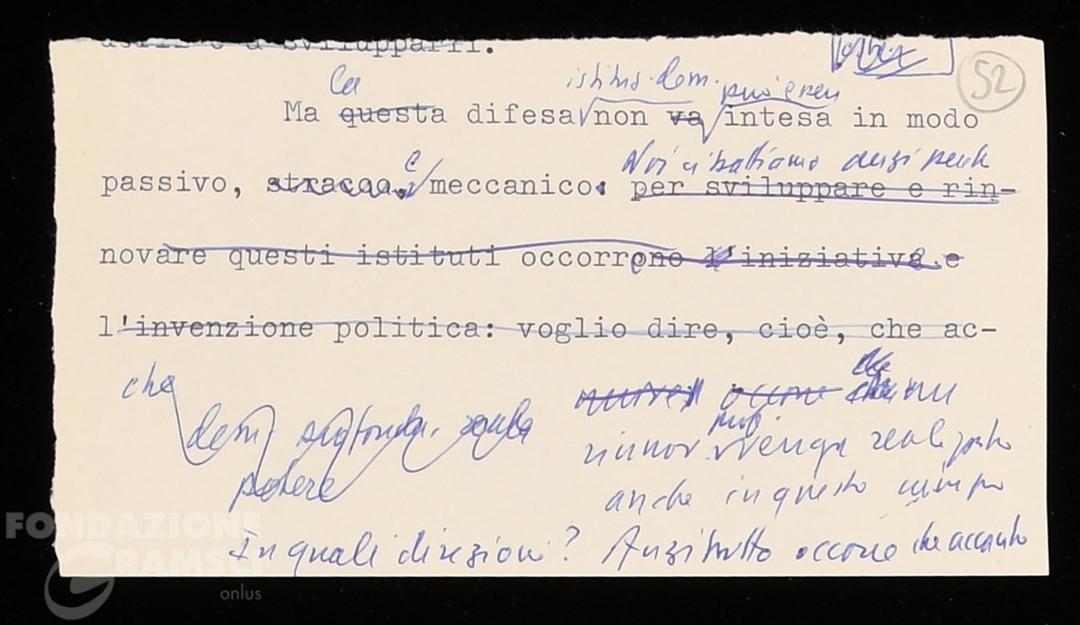 a sviluppарli.
52
La istitus. dem. può essere
Ma questa difesa non va intesa in modo
e Noi ci battiamo anzi perchè
passivo, stracco, meccanico: per sviluppare e rin-
novare questi istituti occorrono l'iniziativa e
l'invenzione politica: voglio dire, cioè, che ac-
che occorre che un
rinnov. prof. venga realizzato
potere anche in questo campo
In quali direzioni? Anzitutto occorre che accanto
FONDAZIONE
GRAMSCI
onlus